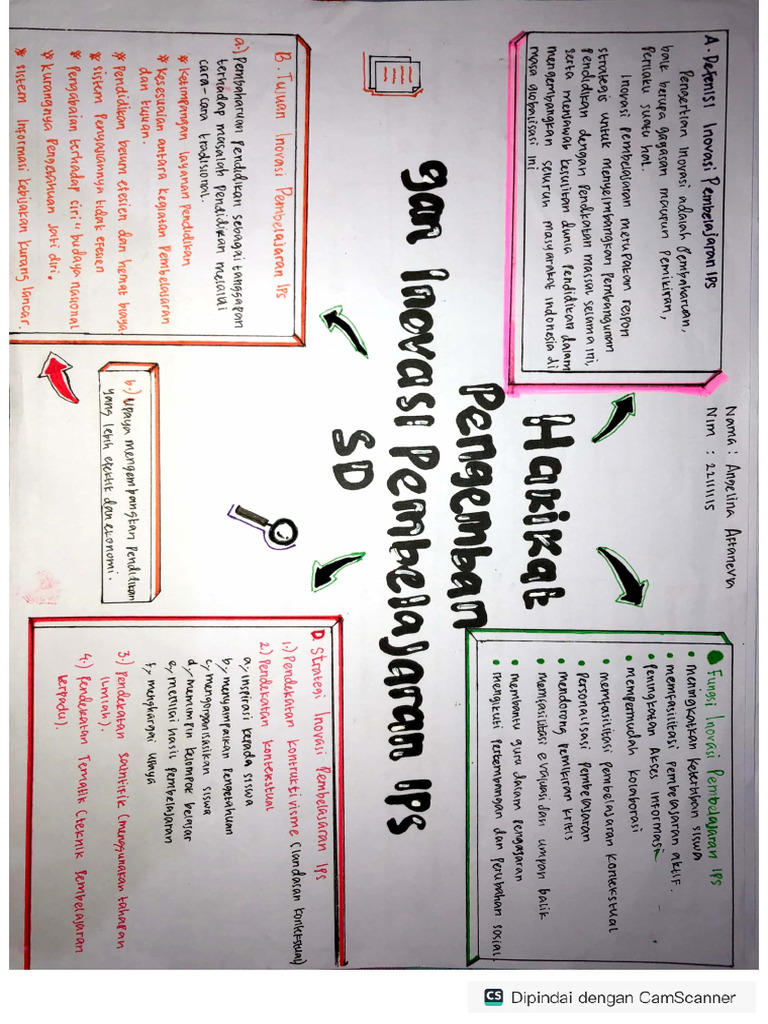 Nama : Angelina Aftaneva
Nim : 2211115
Hakikat
Pengemban
gan Inovasi Pembelajaran IPS
SD
A. Defenisi Inovasi Pembelajaran IPS
Pengertian inovasi adalah pembaharuan,
baik berupa gagasan maupun pemikiran,
Perilaku suatu hal.
Inovasi pembelajaran merupakan respon
strategis untuk menyeimbangkan pembangunan
Pendidikan dengan pendkatan massal selama ini,
serta menjawab kesulitan dunia pendidikan dalam
mengembangkan seluruh masyarakat indonesia di
masa globalisasi ini
B. Tujuan Inovasi Pembelajaran IPS
a.) Pembaharuan pendidikan sebagai tanggapan
terhadap masalah pendidikan melalui
cara-cara tradisional.
* Ketimpangan layanan pendidikan
* Kesesuaian antara kegiatan pembelajaran
dan tujuan.
* Pendidikan belum efesien dan hemat biaya
* sistem penyajiannya tidak efesien
* Pengabaian terhadap ciri" budaya nasional
* Kurangnya pengetahuan jati diri.
* sistem informasi kebijakan kurang lancar.
b.) Upaya mengembangkan pendidikan
yang lebih efektif dan ekonomi.
Fungsi Inovasi Pembelajaran IPS
• meningkatkan keterliban siswa
• memfasilitasi pembelajaran aktif.
• Peningkatan Akses informasi
• mempermudah kolaborasi
• memfasilitasi pembelajaran kontekstual
• Personalisasi pembelajaran
• mendorong pemikiran kritis
• memfasilitasi evaluasi dan umpan balik
• membantu guru dalam pengajaran
• mengikuti perkembangan dan perubahan sosial
D. Strategi Inovasi Pembelajaran IPS
1.) Pendekatan kontruktivisme (landasan kontekstual)
2.) Pendekatan kontekstual
a, inspirasi kepada siswa
b, menyampaikan pengetahuan
c, mengorganisasikan siswa
d, memimpin kelompok belajar
e, menilai hasil pembelajaran
f, menghargai upaya
3.) Pendekatan saintifik (menggunakan tahapan
ilmiah).
4.) Pendekatan Tematik (teknik pembelajaran
terpadu).
CS Dipindai dengan CamScanner